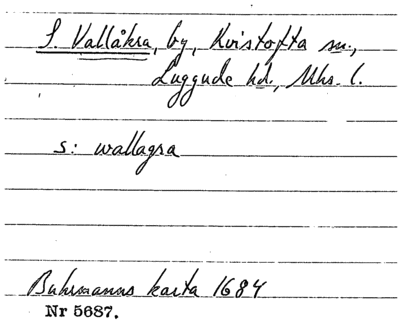 S. Vallåkra, by, Kvistofta sn.,
Luggude hd., Mhs. l.
s: wallagra
Buhrmanns karta 1684
Nr 5687.